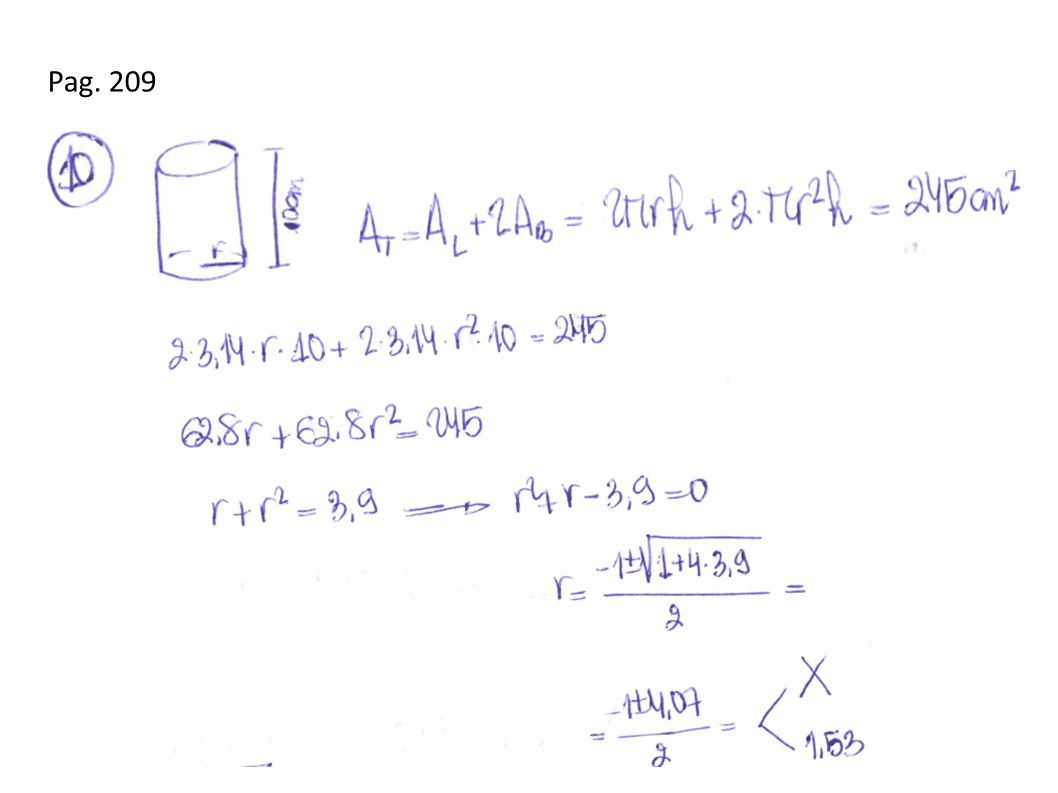 Pag. 209
10
10cm
r
A_T = A_L + 2A_B = 2πrh + 2·πr²h = 245cm²
2·3,14·r·10 + 2·3,14·r²·10 = 245
62,8r + 62,8r² = 245
r + r² = 3,9 → r² + r - 3,9 = 0
r = (-1±√(1+4·3,9))/2 =
= (-1±4,07)/2 = < X
1,53